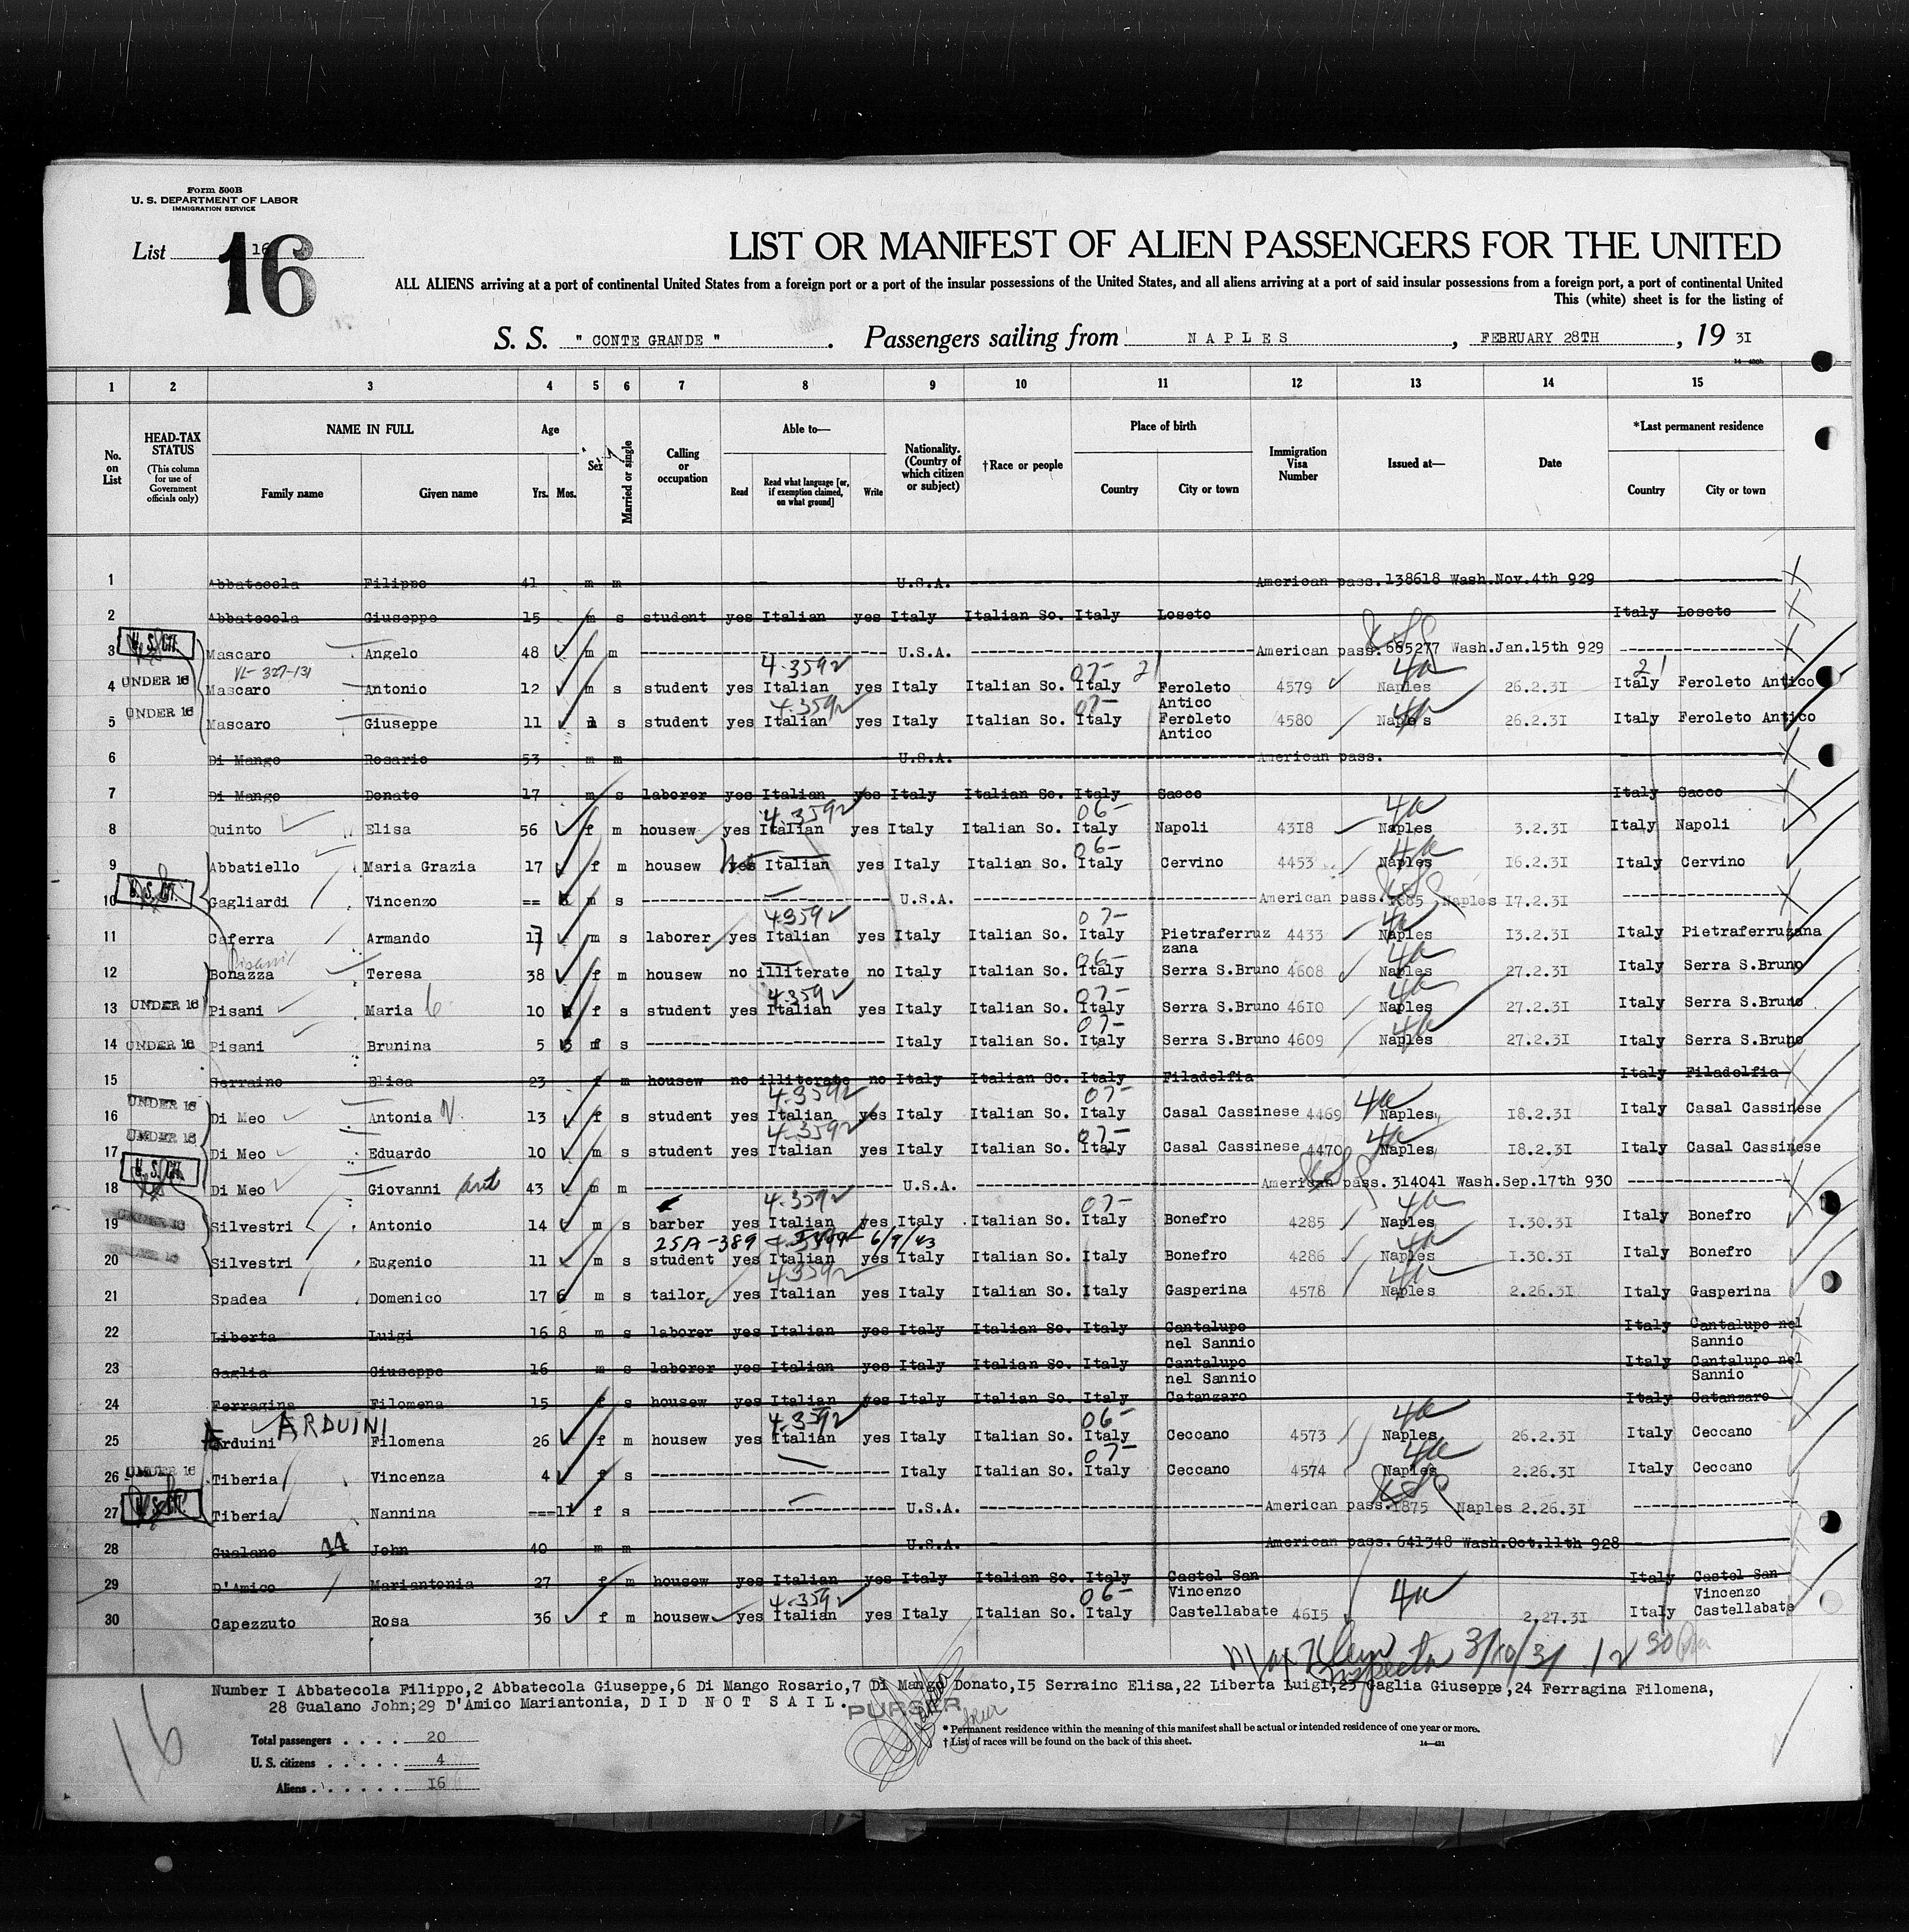 Form 500B
U. S. DEPARTMENT OF LABOR
IMMIGRATION SERVICE
List 16
16
LIST OR MANIFEST OF ALIEN PASSENGERS FOR THE UNITED
ALL ALIENS arriving at a port of continental United States from a foreign port or a port of the insular possessions of the United States, and all aliens arriving at a port of said insular possessions from a foreign port, a port of continental United
This (white) sheet is for the listing of
S. S. " CONTE GRANDE " . Passengers sailing from NAPLES , FEBRUARY 28TH , 19 31
14—430b
1 2 3 4 5 6 7 8 9 10 11 12 13 14 15
No. on List
HEAD-TAX STATUS
(This column for use of Government officials only)
NAME IN FULL
Family name Given name
Age
Yrs. Mos.
Sex
Married or single
Calling or occupation
Able to—
Read Read what language [or, if exemption claimed, on what ground] Write
Nationality. (Country of which citizen or subject)
†Race or people
Place of birth
Country City or town
Immigration Visa Number
Issued at—
Date
*Last permanent residence
Country City or town
1 Abbatecola Filippo 41 m m U.S.A. American pass. 138618 Wash.Nov.4th 929
2 Abbatecola Giuseppe 15 m s student yes Italian yes Italy Italian So. Italy Loseto Italy Loseto
U. S. CIT.
3 Mascaro Angelo 48 m m U.S.A. American pass. 665277 Wash.Jan.15th 929
VL- 327-131 4-3592 07- 2 4a 2
4 UNDER 16 Mascaro Antonio 12 m s student yes Italian yes Italy Italian So. Italy Feroleto Antico 4579 Naples 26.2.31 Italy Feroleto Antico
4-3592 07- 4a
5 UNDER 16 Mascaro Giuseppe 11 s student yes Italian yes Italy Italian So. Italy Feroleto Antico 4580 Naples 26.2.31 Italy Feroleto Antico
6 Di Mango Rosario 53 m m U.S.A. American pass.
7 Di Mango Donato 17 m s laborer yes Italian yes Italy Italian So. Italy Sacco Italy Sacco
4-3592 06- 4a
8 Quinto Elisa 56 f m housew yes Italian yes Italy Italian So. Italy Napoli 4318 Naples 3.2.31 Italy Napoli
06- 4a
9 Abbatiello Maria Grazia 17 f m housew yes Italian yes Italy Italian So. Italy Cervino 4453 Naples 16.2.31 Italy Cervino
U. S. CIT.
10 Gagliardi Vincenzo == m s U.S.A. American pass. 1385 Naples 17.2.31
4-3592 07- 4a
11 Caferra Armando 17 m s laborer yes Italian yes Italy Italian So. Italy Pietraferruz zana 4433 Naples 13.2.31 Italy Pietraferruzana
Pisani 06- 4a
12 Bonazza Teresa 38 f m housew no illiterate no Italy Italian So. Italy Serra S.Bruno 4608 Naples 27.2.31 Italy Serra S.Bruno
4-3592 07- 4a
13 UNDER 16 Pisani Maria 10 f s student yes Italian yes Italy Italian So. Italy Serra S.Bruno 4610 Naples 27.2.31 Italy Serra S.Bruno
07- 4a
14 UNDER 16 Pisani Brunina 5 f s Italy Italian So. Italy Serra S.Bruno 4609 Naples 27.2.31 Italy Serra S.Bruno
15 Serraino Elisa 23 f m housew no illiterate no Italy Italian So. Italy Filadelfia Italy Filadelfia
4-3592 07- 4a
16 UNDER 16 Di Meo Antonia N. 13 f s student yes Italian yes Italy Italian So. Italy Casal Cassinese 4469 Naples 18.2.31 Italy Casal Cassinese
4-3592 07- 4a
17 UNDER 16 Di Meo Eduardo 10 m s student yes Italian yes Italy Italian So. Italy Casal Cassinese 4470 Naples 18.2.31 Italy Casal Cassinese
U. S. CIT.
18 Di Meo Giovanni 43 m m U.S.A. American pass. 314041 Wash.Sep.17th 930
4-3592 07- 4a
19 UNDER 16 Silvestri Antonio 14 m s barber yes Italian yes Italy Italian So. Italy Bonefro 4285 Naples 1.30.31 Italy Bonefro
25A-389 6/9/43 4a
20 UNDER 16 Silvestri Eugenio 11 m s student yes Italian yes Italy Italian So. Italy Bonefro 4286 Naples 1.30.31 Italy Bonefro
4-3592 4a
21 Spadea Domenico 17 6 m s tailor yes Italian yes Italy Italian So. Italy Gasperina 4578 Naples 2.26.31 Italy Gasperina
22 Liberta Luigi 16 8 m s laborer yes Italian yes Italy Italian So. Italy Cantalupo nel Sannio Italy Cantalupo nel Sannio
23 Gaglia Giuseppe 16 m s laborer yes Italian yes Italy Italian So. Italy Cantalupo nel Sannio Italy Cantalupo nel Sannio
24 Ferragina Filomena 15 f s housew yes Italian yes Italy Italian So. Italy Catanzaro Italy Catanzaro
ARDUINI 4-3592 06- 4a
25 Arduini Filomena 26 f m housew yes Italian yes Italy Italian So. Italy Ceccano 4573 Naples 26.2.31 Italy Ceccano
07- 4a
26 UNDER 16 Tiberia Vincenza 4 f s Italy Italian So. Italy Ceccano 4574 Naples 2.26.31 Italy Ceccano
U. S. CIT.
27 Tiberia Nannina 11 f s U.S.A. American pass. 1875 Naples 2.26.31
28 Gualano John 40 m m U.S.A. American pass. 641348 Wash.Oct.11th 928
29 D'Amico Mariantonia 27 f m housew yes Italian yes Italy Italian So. Italy Castel San Vincenzo Italy Castel San Vincenzo
4-3592 06- 4a
30 Capezzuto Rosa 36 f m housew yes Italian yes Italy Italian So. Italy Castellabate 4615 2.27.31 Italy Castellabate
Inspector 3/10/31 12 30
Number I Abbatecola Filippo,2 Abbatecola Giuseppe,6 Di Mango Rosario,7 Di Mango Donato,I5 Serraino Elisa,22 Liberta Luigi,23 Gaglia Giuseppe,24 Ferragina Filomena,
28 Gualano John;29 D'Amico Mariantonia, DID NOT SAIL.
PURSER
16
Total passengers . . . . 20
U. S. citizens . . . . . 4
Aliens . . . . . . 16
* Permanent residence within the meaning of this manifest shall be actual or intended residence of one year or more.
† List of races will be found on the back of this sheet.
14—431